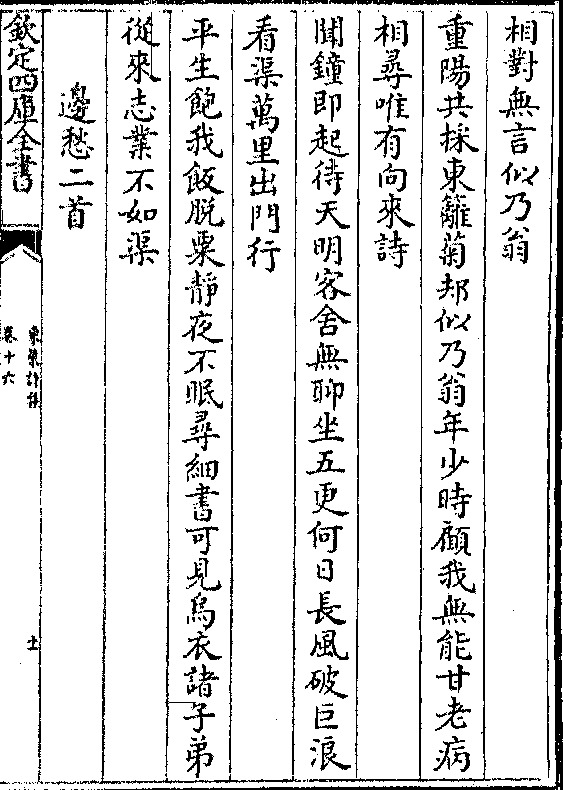 相對無言似乃翁
重陽共採東籬菊却似乃翁年少時顧我無能甘老病
相尋唯有向來詩
聞鐘即起待天明客舍無聊坐五更何日長風破巨浪
看渠萬里出門行
平生飽我飯脱粟靜夜不眠尋細書可見烏衣諸子弟
從來志業不如渠
邊愁二首
欽定四庫全書
東萊詩集
卷十六
十一